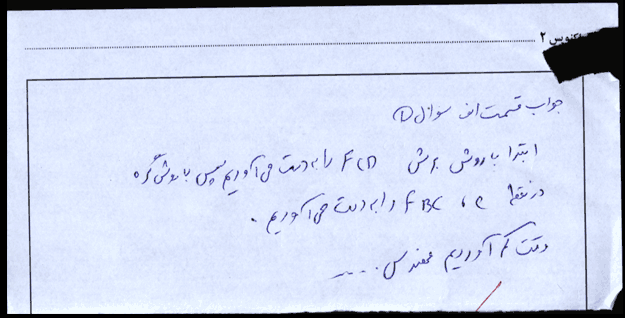 ۲
جواب قسمت الف سوال ①
ابتدا با روش برش FCD را بدست می‌آوریم سپس با روش گره
در نقطه C ، FBC را بدست می‌آوریم .
وقت کم آوردیم مهندس .....